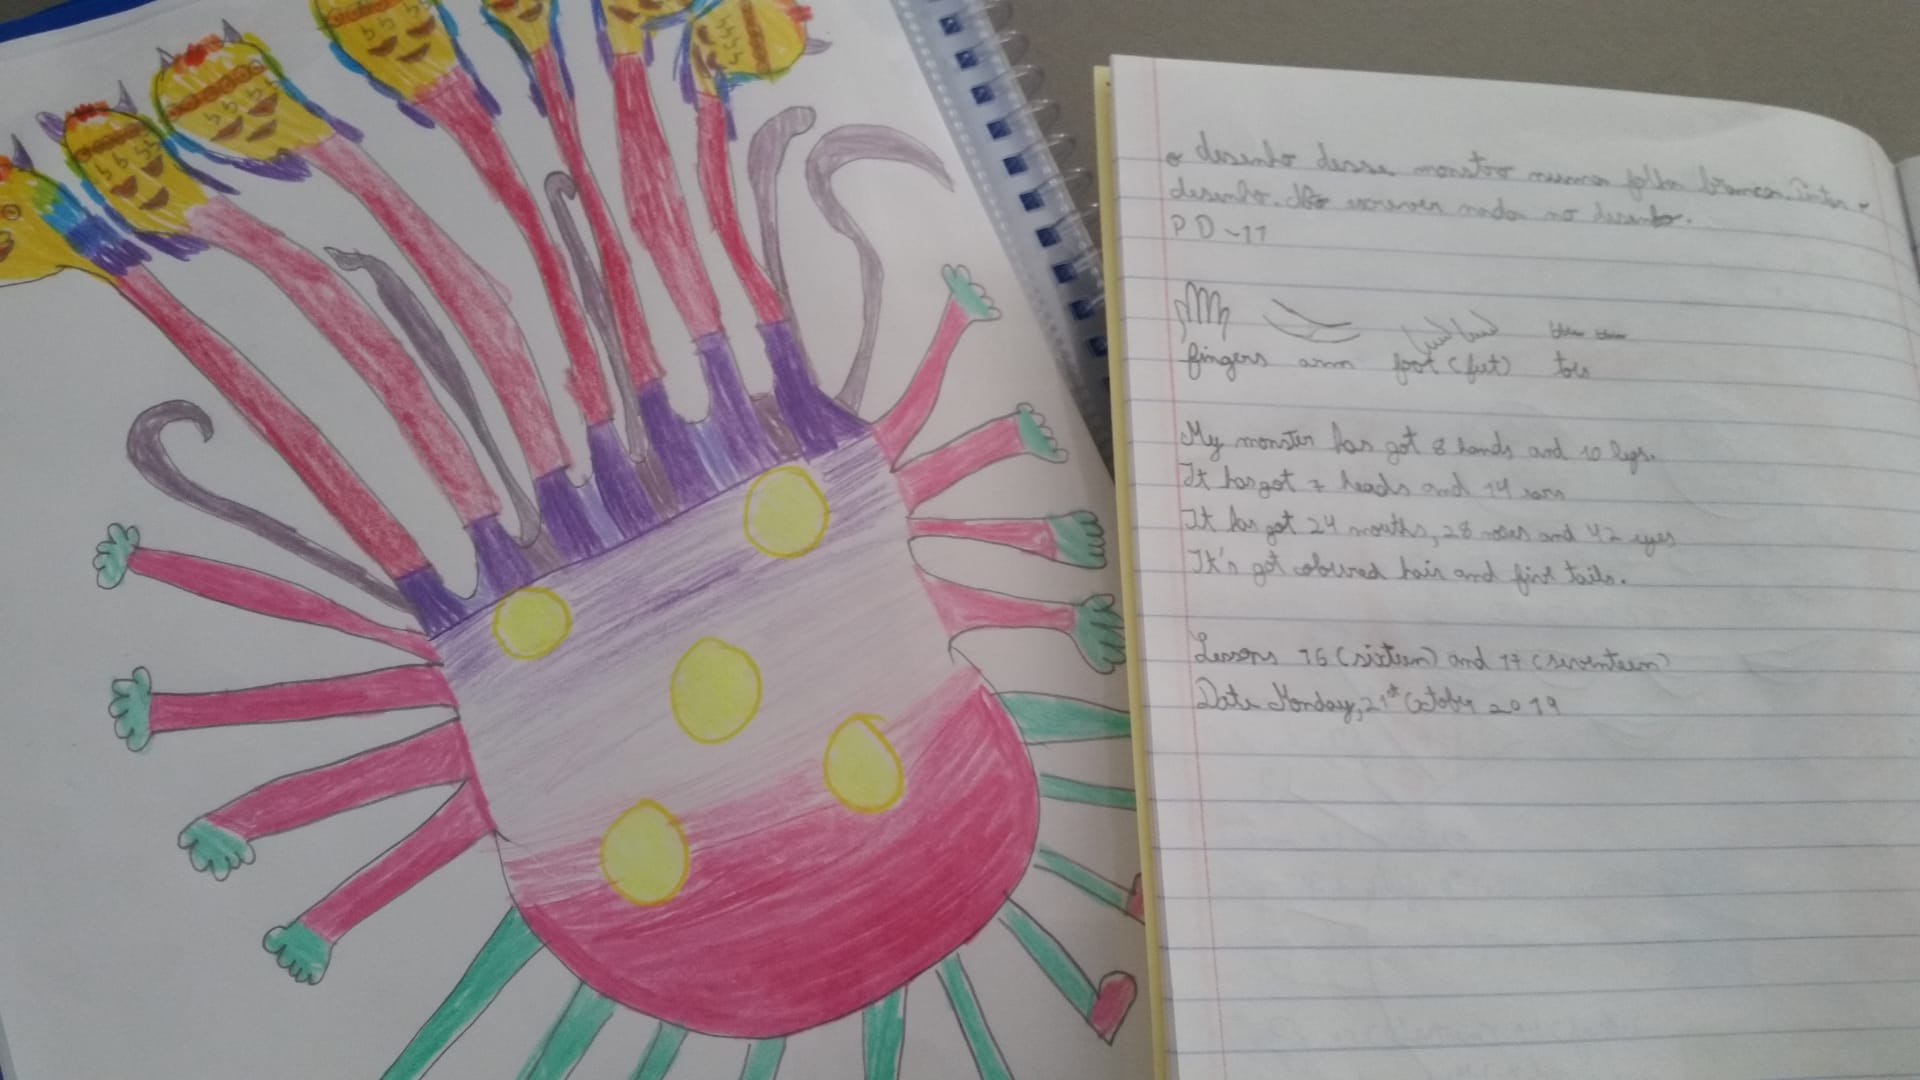 o desenho desse monstro numa folha branca. Pintar o
desenho. Não escrever nada no desenho.
PD-11
fingers arm foot (feet) toes
My monster has got 8 hands and 10 legs.
It has got 7 heads and 14 ears
It has got 24 mouths, 28 noses and 42 eyes
It's got coloured hair and five tails.
Lessons 16 (sixteen) and 17 (seventeen)
Date Monday, 21st October 2019